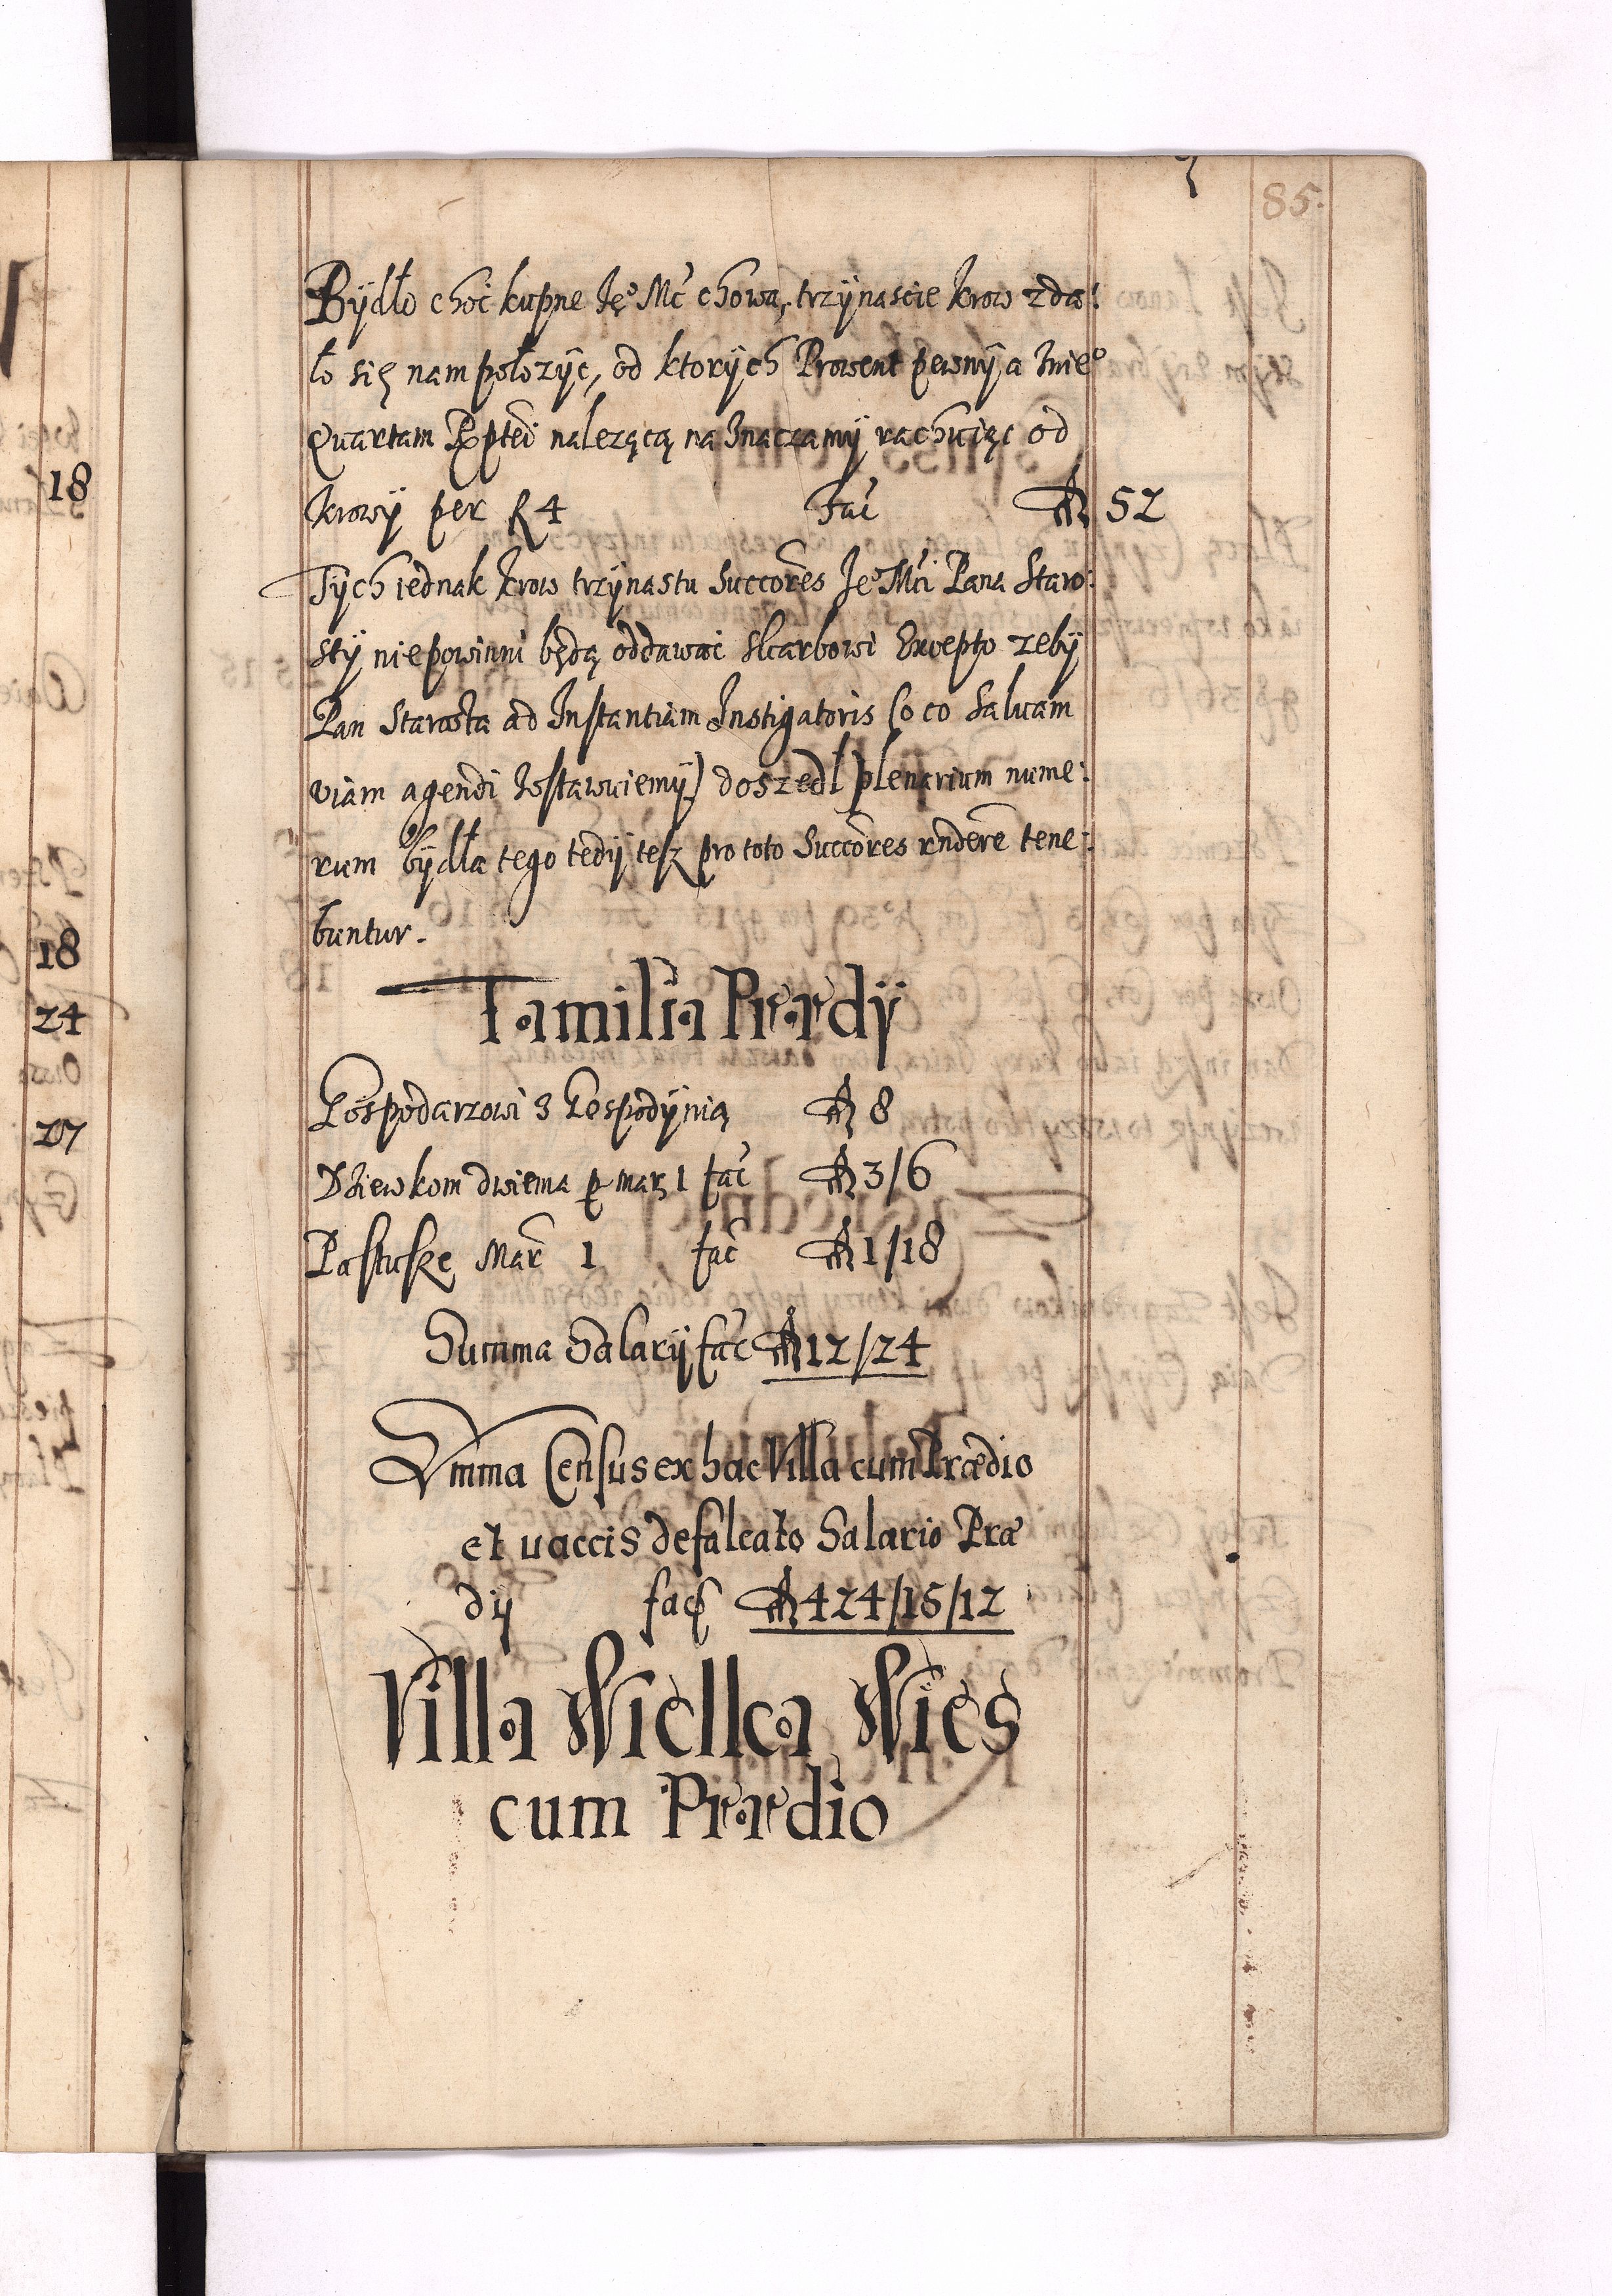 85.
Bÿdło choc kupne Je° Mć chowa, trzÿnascie krow zda:
ło się nam położÿc, od ktorÿch Prowent pewnÿ a Znie°
Quartam Rptei nalezącą na Znaczamÿ rachuiąc od
krowÿ per R 4 fać fl 52
Tÿch iednak krow trzÿnastu Succores Je° Mći Pana Staro:
stÿ niepowinni będą oddawac skarbowi Excepto zebÿ
Pan Starosta ad Instantiam Instigatoris (o co Saluam
viam agendi Zostawuiemÿ) doszedł plenarium nume:
rum bÿdła tego tedÿ tesz pro toto Succores rndere tene:
buntur.
Familia Prædÿ
Gospodarzowi z Gospodÿnią fl 8
Dziewkom dwiema p mar 1 fać fl 3/6
Pastusze Mar 1 fać fl 1/18
Summa Salarÿ fać fl 12/24
Summa Census ex hac Villa cum Prædio
et vaccis defalcato Salario Præ
dÿ fac fl 424/15/12
Villa Wielka Wies
cum Prædio
18
18
24
27